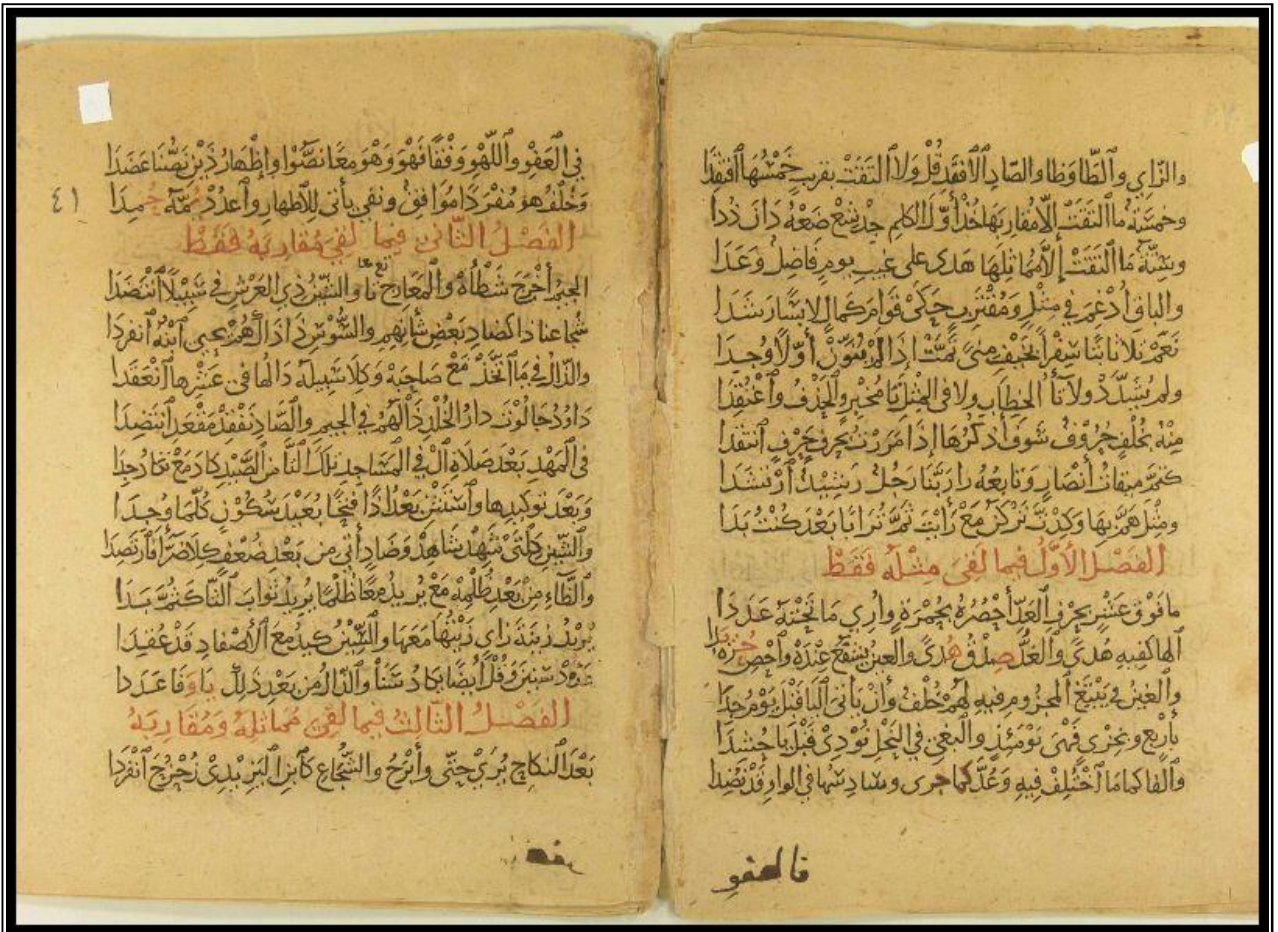 والزاي والطا وظا والصاد الافقد قل ولا التقت بقرب خمسها افتقدا
وخمسة ما التقت إلا مقاربها خذ أول الكلم جد ينع ضعه دان ذدا
وستة ما التقت إلا مماثلها هدى على غيب يوم فاضل وعدا
والباقي أدغم في مثل ومقترب حكى قوام كمال
نعم ثلاثا بنا سفرا لخيف منى تمت إذا لم ينون أولا وجدا
ولم يشدد ولا تا الخطاب ولا في المثل تا مخبر والحذف واعتقدا
منه بخلف حروف سوف أذكرها إذا مررت بحرف حرف انتقدا
كتم ميقات أنصار وتابعه را ربنا رجل رشيد
ومثل هم بها وكدت تركن مع رأيت ثم ترابا بعد كنت بدا
الفصل الأول فيما لقي مثله فقط
ما فوق عشر بحرف العد أحصره بحمرة وأري ما تحته عددا
الها كفيه هدى والعد صدق هدى والعين يشفع عنده واحص
والغين في يبتغ المجزوم فيه لهم خلف وأن يأتي اليا قبل يوم جدا
بأربع وبخزي فهي يومئذ والبغي في النحل نودي قبل يا
والفا كما ما اختلف فيه وعد كما جرى وسادسها في الواو قد نضدا
فالعفو
في العفو واللهو وقفا فهو وهو معا نصوا وإظهار ذين نصنا عضدا
وخلف هو مفردا موافق ونفى يأتي للاظهار واعدد
٤١
الفصل الثاني فيما لقي مقاربه فقط
الجيم أخرج شطأه والمعارج تا تع معا والشين ذي العرش في سبيلا انتضدا
شجاعنا ذا كضاد بعض شأنهم والسوس
والذال في ما اتخذ مع صاحبة وكلا سبيله دالها في عشرها انعقدا
داود جالوت دار الخلد ذا لهم في الجيم والصاد نفقد مقعد انتضدا
في المهد بعد صلاة ال في المساجد تلك التا من الصيد كاد مع
وبعد توكيدها واستثن بعد إذا فتحا بعيد سكون كلما وجدا
والشين دلتي شهد شاهد وضاد أتى من بعد ضعف كلا ضرا
والظاء من بعد ظلمه مع يريد معا ظلما يريد ثواب الثا كثم بدا
يريد زينة زاي زيتها معها والسين كيد مع الأصفاد قد عقدا
عدد سنين وقل أيضا يكاد سنا والذال من بعد ذلك يا وفا عددا
الفصل الثالث فيما لقي مماثله ومقاربه
بعد النكاح يري حتى وأبرح والشجاع كابن البزيدي زحزح انفردا